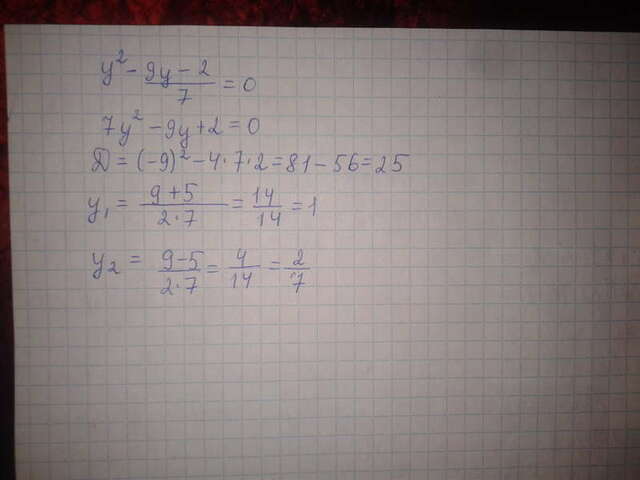 y² - (9y - 2)/7 = 0
7y² - 9y + 2 = 0
D = (-9)² - 4·7·2 = 81 - 56 = 25
y₁ = (9 + 5)/(2·7) = 14/14 = 1
y₂ = (9 - 5)/(2·7) = 4/14 = 2/7